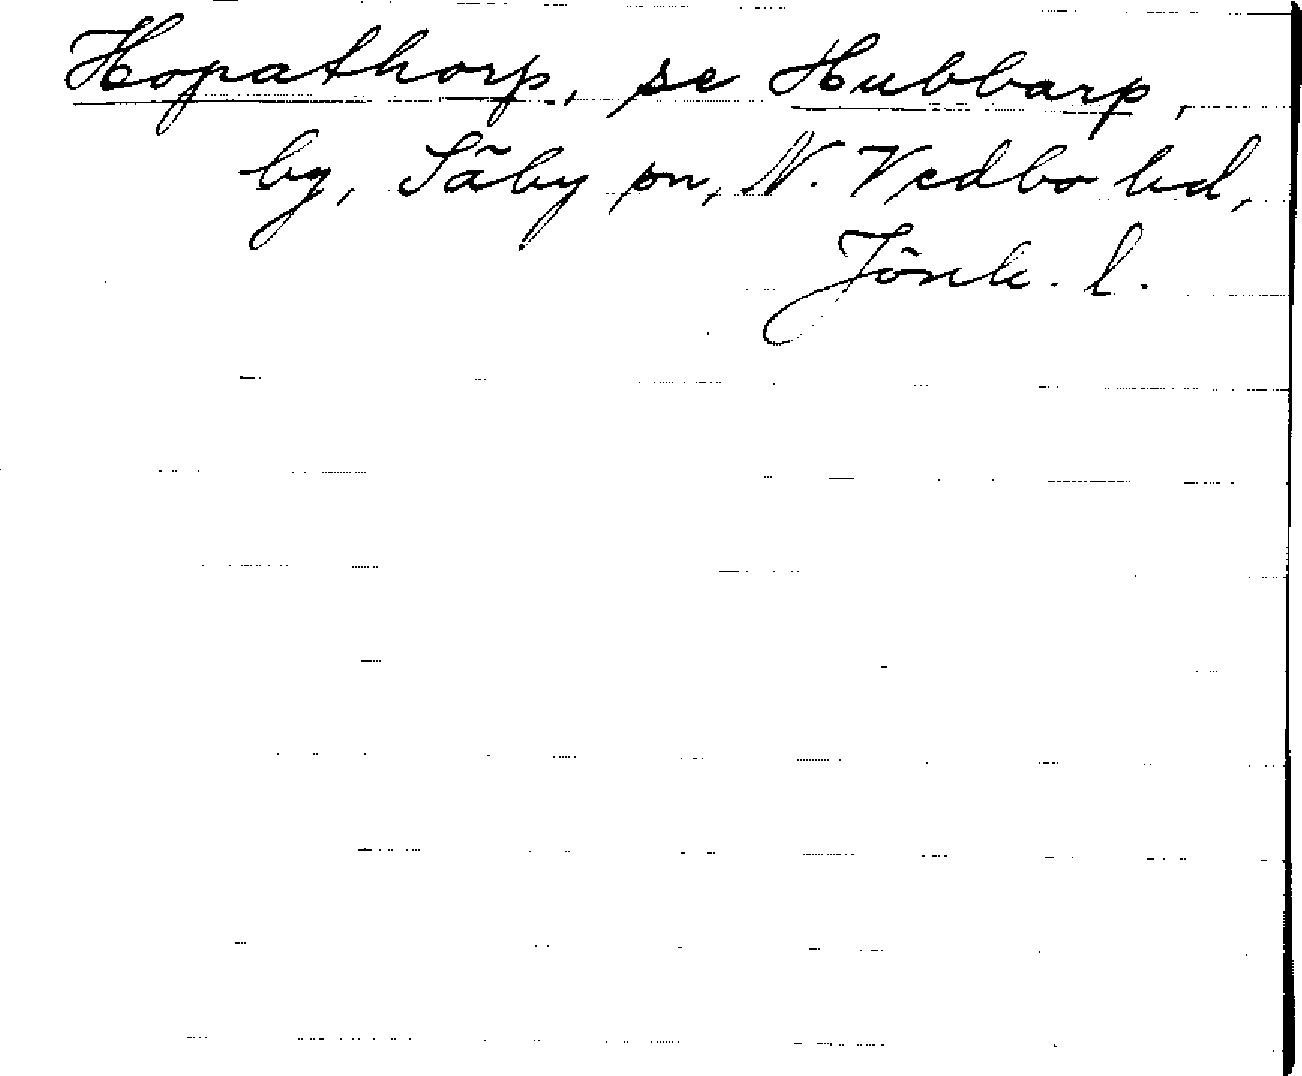 Hopathorp, se Hubbarp,
by, Säby sn, N. Vedbo hd,
Jönk. l.